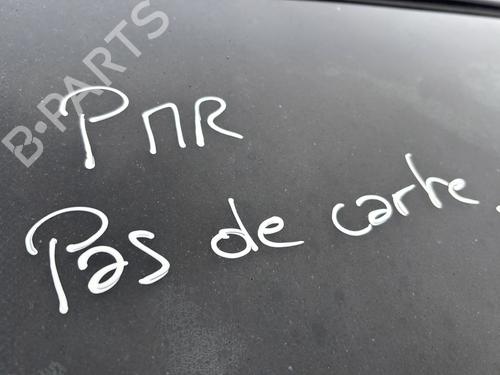 B-PARTS
PMR
Pas de carte.